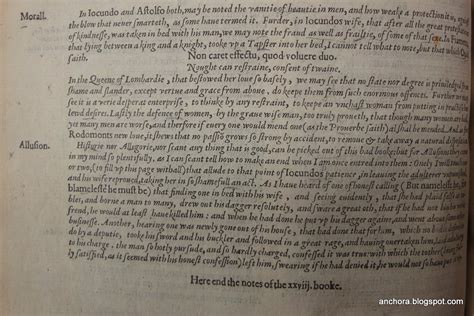 Morall. In Iocundo and Astolfo both, may be noted the vanitie of beautie in men, and how weake a protection it is against
the blow that never smarteth, as some have termed it. Furder, in Iocundos wife, that after all the great
of kindnesse, was taken in bed with his man, we may note the fraud as well as frailtie, of some of that sexe. In
that lying betweene a king and a knight, tooke up a Tapster into her bed, I cannot tell what to note, but that which
saith.
Non caret effectu, quod voluere duo.
Nought can restraine, consent of twaine.
In the Queene of Lombardie, that bestowed her love so basely, we may see that no state nor degree is priviledged from
shame and slander, except vertue and grace from above, do keepe them from such enormous offences. Further
see it is a verie desperat enterprise, to thinke by any restraint, to keepe an unchast woman from putting in practise
lewd desires. Lastly the defence of women, by the grave wise man, too truly proueth, that though many women are
yet many men are worse, and therefore if every one would mend one (as the Proverbe saith) all shall be mended. And
Rodomonts new love, it shewes that no passion is so strong by accident, to remove or take away a naturall
Allusion. Historie nor Allegorie, nor scant any thing that is good, can be picked out of this bad booke; but for Allusions,
in my mind so plentifully, as I can scant tell how to make an end when I am once entred into them: Onely I will
or two, (to fill up this page withall) that allude to that point of Iocundos patience, in leaving the adulterer
and his wife unreproved, taking her in so shamefull an act. As I have heard of one of honest calling (But namelesse
blamelesse he must be) that finding one in bed with his wife, and seeing evidently, that he had
and horne a man to many, drew out his dagger resolutely, and sware a great oth, that if he had not
he would at least have killed him: and when he had done he put up his dagger againe, and went about some
businesse. Another, hearing one was newly gone out of his house, that had done that for him, which no
do by a deputie, tooke his sword and his buckler and followed in a great rage, and having overtaken him,
to his charge. the man so hotly pursude, and so hardly charged, confessed it was true;
ly satisfied, as it seemed of his honest confession) left him, swearing if he had denied it, he would not so have
Here end the notes of the xxviij. booke.
anchora.blogspot.com